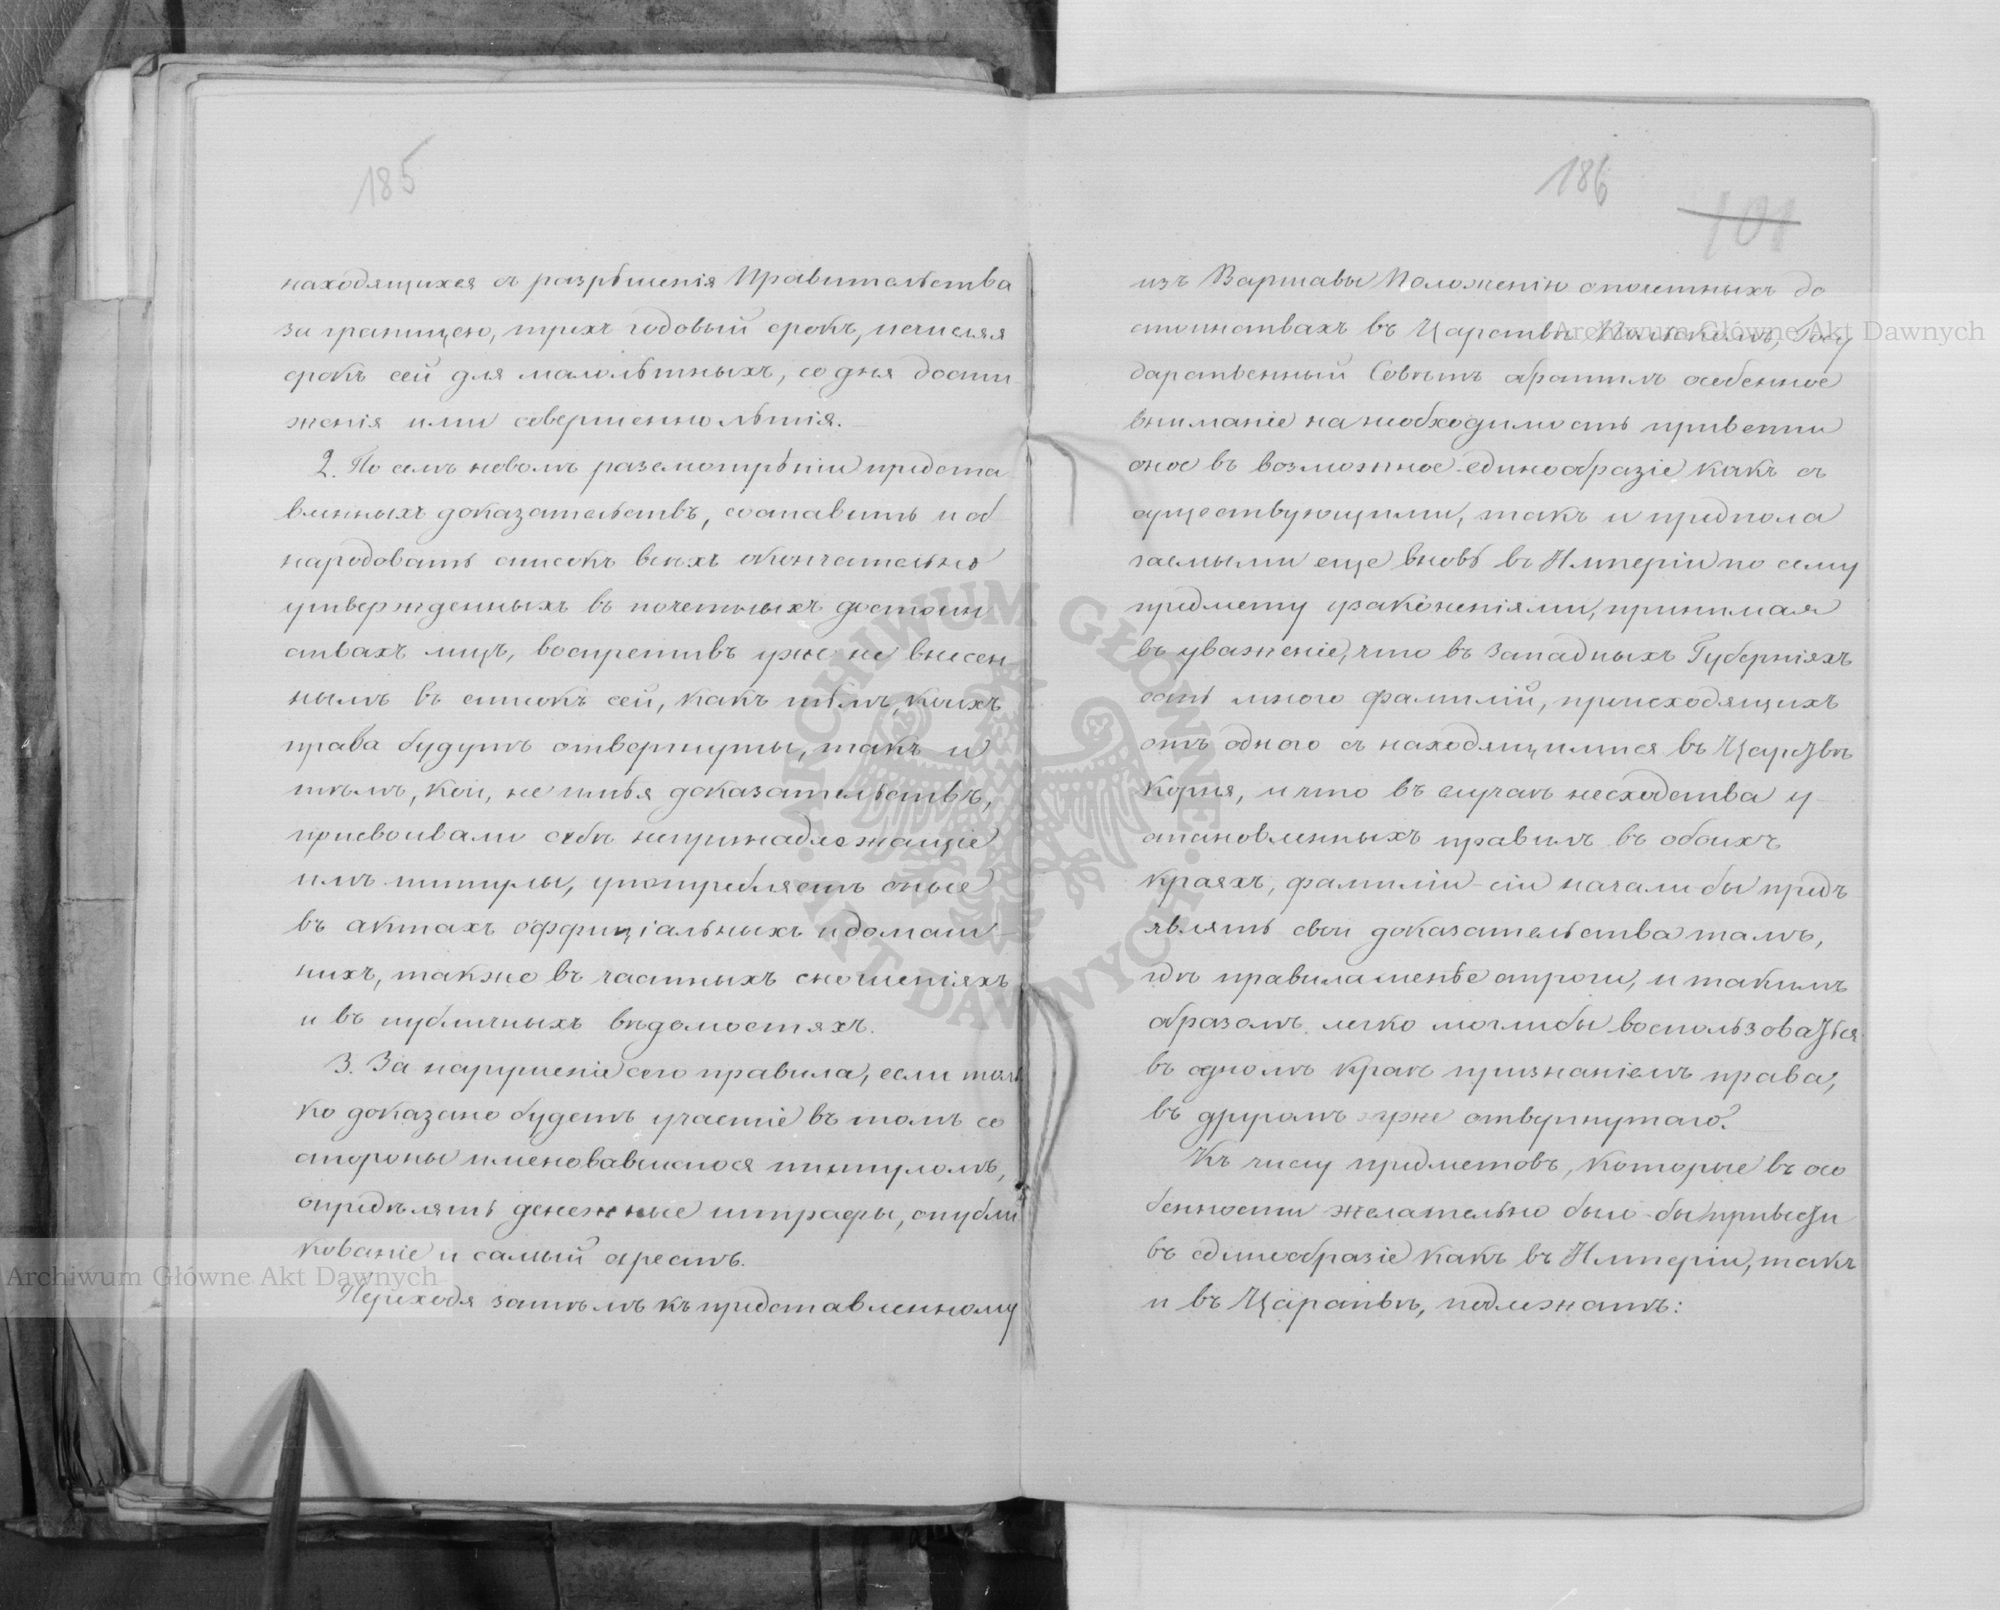 185
находящихся съ разрѣшенія Правительства
за границею, трехъ годовый срокъ, исчисляя
срокъ сей для малолѣтныхъ, со дня дости
женія ими совершеннолѣтія.
2. По семъ новомъ разсмотрѣніи предста
вленныхъ доказательствъ, составить и об
народовать списокъ всѣхъ окончательно
утвержденныхъ въ почетныхъ достоин
ствахъ лицъ, воспретивъ уже не внесен
нымъ въ списокъ сей, какъ тѣмъ, коихъ
права будутъ отвергнуты, такъ и
тѣмъ, кои, не имѣя доказательствъ,
присвоивали себѣ непринадлежащіе
имъ титулы, употреблять оные
въ актахъ оффиціальныхъ и домаш
нихъ, также въ частныхъ сношеніяхъ
и въ публичныхъ вѣдомостяхъ.
3. За нарушеніе сего правила, если толь
ко доказано будетъ участіе въ томъ со
стороны именовавшагося титуломъ,
опредѣлять денежные штрафы, опубли
кованіе и самый арестъ.
Переходя затѣмъ къ представленному
186
101
изъ Варшавы Положенію о почетныхъ до
стоинствахъ въ Царствѣ Польскомъ, Госу
дарственный Совѣтъ обратилъ особенное
вниманіе на необходимость привести
оное въ возможное единообразіе какъ съ
существующими, такъ и предпола
гаемыми еще вновь въ Имперіи по сему
предмету узаконеніями, принимая
въ уваженіе, что въ Западныхъ Губерніяхъ
есть много фамилій, происходящихъ
отъ одного съ находящимися въ Царствѣ
корня, и что въ случаѣ несходства у
становленныхъ правилъ въ обоихъ
краяхъ, фамиліи сіи начали бы предъ
являть свои доказательства тамъ,
гдѣ правила менѣе строги, и такимъ
образомъ легко моглибы воспользоваться
въ одномъ краѣ признаніемъ права,
въ другомъ уже отвергнутаго.
Къ числу предметовъ, которые въ осо
бенности желательно было-бы привести
въ единообразіе какъ въ Имперіи, такъ
и въ Царствѣ, подлежатъ:
Archiwum Główne Akt Dawnych
Archiwum Główne Akt Dawnych
ARCHIWUM GŁÓWNE · AKT DAWNYCH ·